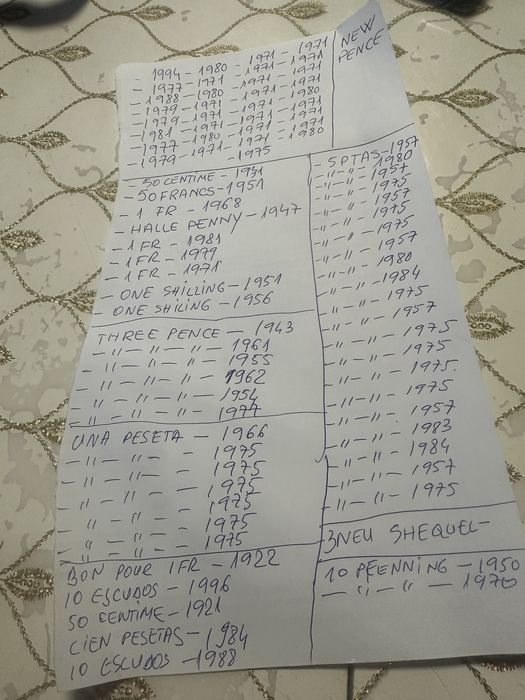 - 1994 - 1980 - 1971 - 1971
- 1977 - 1971 - 1971 - 1971
- 1988 - 1980 - 1971 - 1971
- 1979 - 1971 - 1971 - 1980
- 1979 - 1971 - 1971 - 1971
- 1981 - 1971 - 1971 - 1971
- 1977 - 1980 - 1971 - 1971
- 1979 - 1971 - 1971 - 1980
- 1975
NEW
PENCE
- 50 CENTIME - 1941
- 50 FRANCS - 1951
- 1 FR - 1968
- HALLE PENNY - 1947
- 1 FR - 1981
- 1 FR - 1979
- 1 FR - 1971
- ONE SHILLING - 1951
- ONE SHILING - 1956
THREE PENCE - 1943
- " - " - " - 1961
- " - " - " - 1955
- " - " - " - 1962
- " - " - " - 1954
- " - " - " - 1977
UNA PESETA - 1966
- " - " - - 1975
- " - " - - 1975
- " - " - - 1975
- " - " - - 1975
- " - " - - 1975
- " - " - - 1975
BON POUR 1FR - 1922
10 ESCUDOS - 1996
50 CENTIME - 1921
CIEN PESETAS - 1984
10 ESCUDOS - 1988
- 5 PTAS - 1957
- " - " - 1980
- " - " - 1957
- " - " - 1975
- " - " - 1957
- " - " - 1975
- " - " - 1975
- " - " - 1957
- " - " - 1980
- " - " - 1984
- " - " - 1975
- " - " - 1957
- " - " - 1975
- " - " - 1975
- " - " - 1975.
- " - " - 1975
- " - " - 1957
- " - " - 1983
- " - " - 1984
- " - " - 1957
- " - " - 1975
3 NEU SHEQUEL -
10 PFENNING - 1950
- " - " - 1970